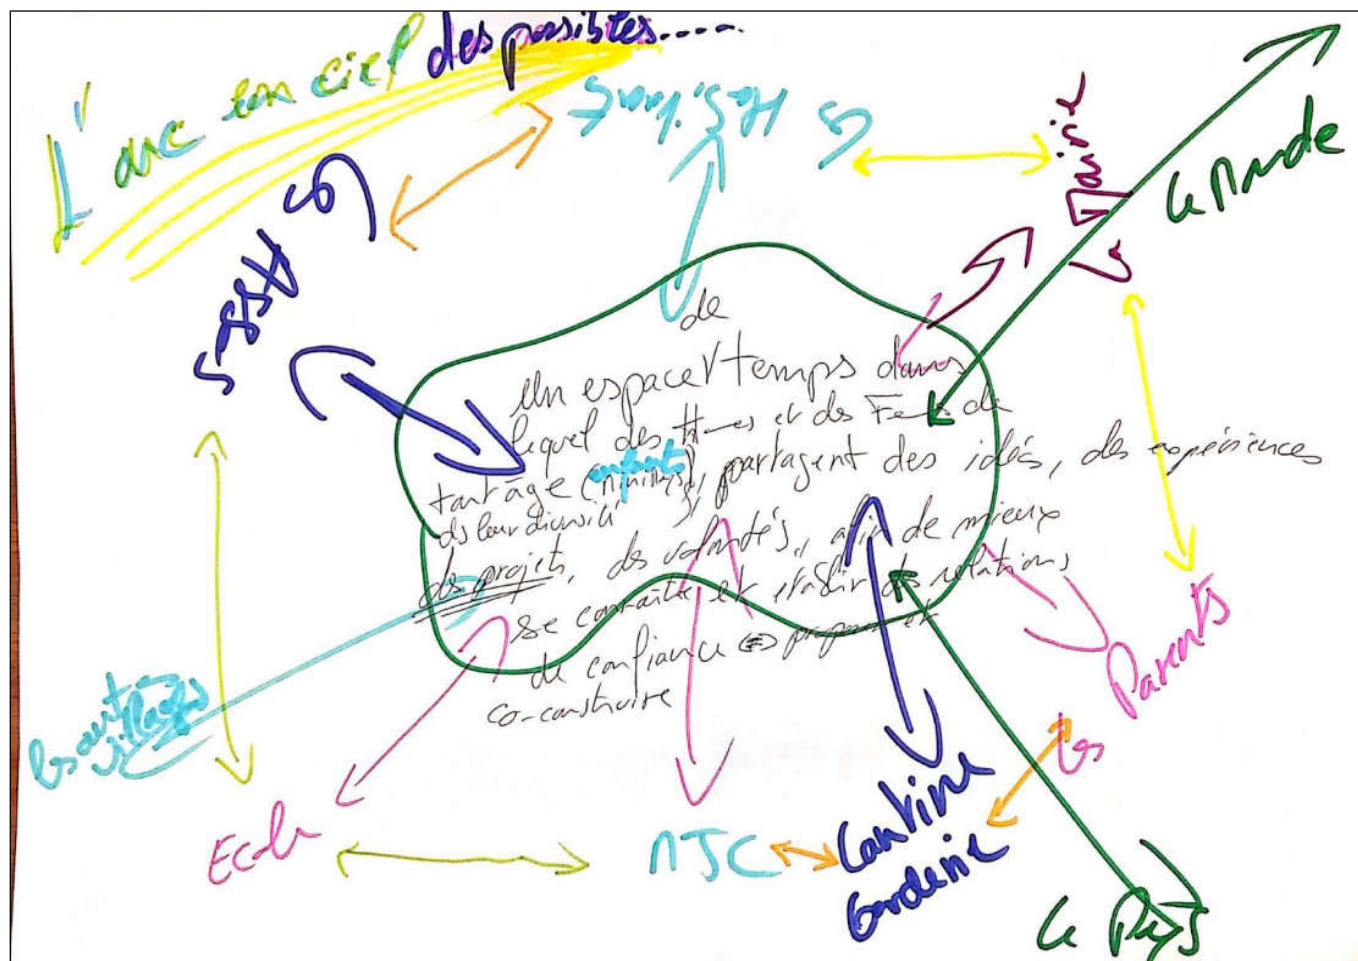 L'arc en ciel des possibles....
Les Habitants
La Mairie
Le Monde
Les Asso-s
de
Un espace temps dans
lequel des H-es et des Fe-s de
tout âge (enfants), partagent des idées, des expériences
ds leur diversité
des projets, des volontés, afin de mieux
se connaître et établir des relations
de confiance proposer et
co-construire
les autres villages
Les Parents
Ecole
MJC
Cantine
Garderie
Le Pays